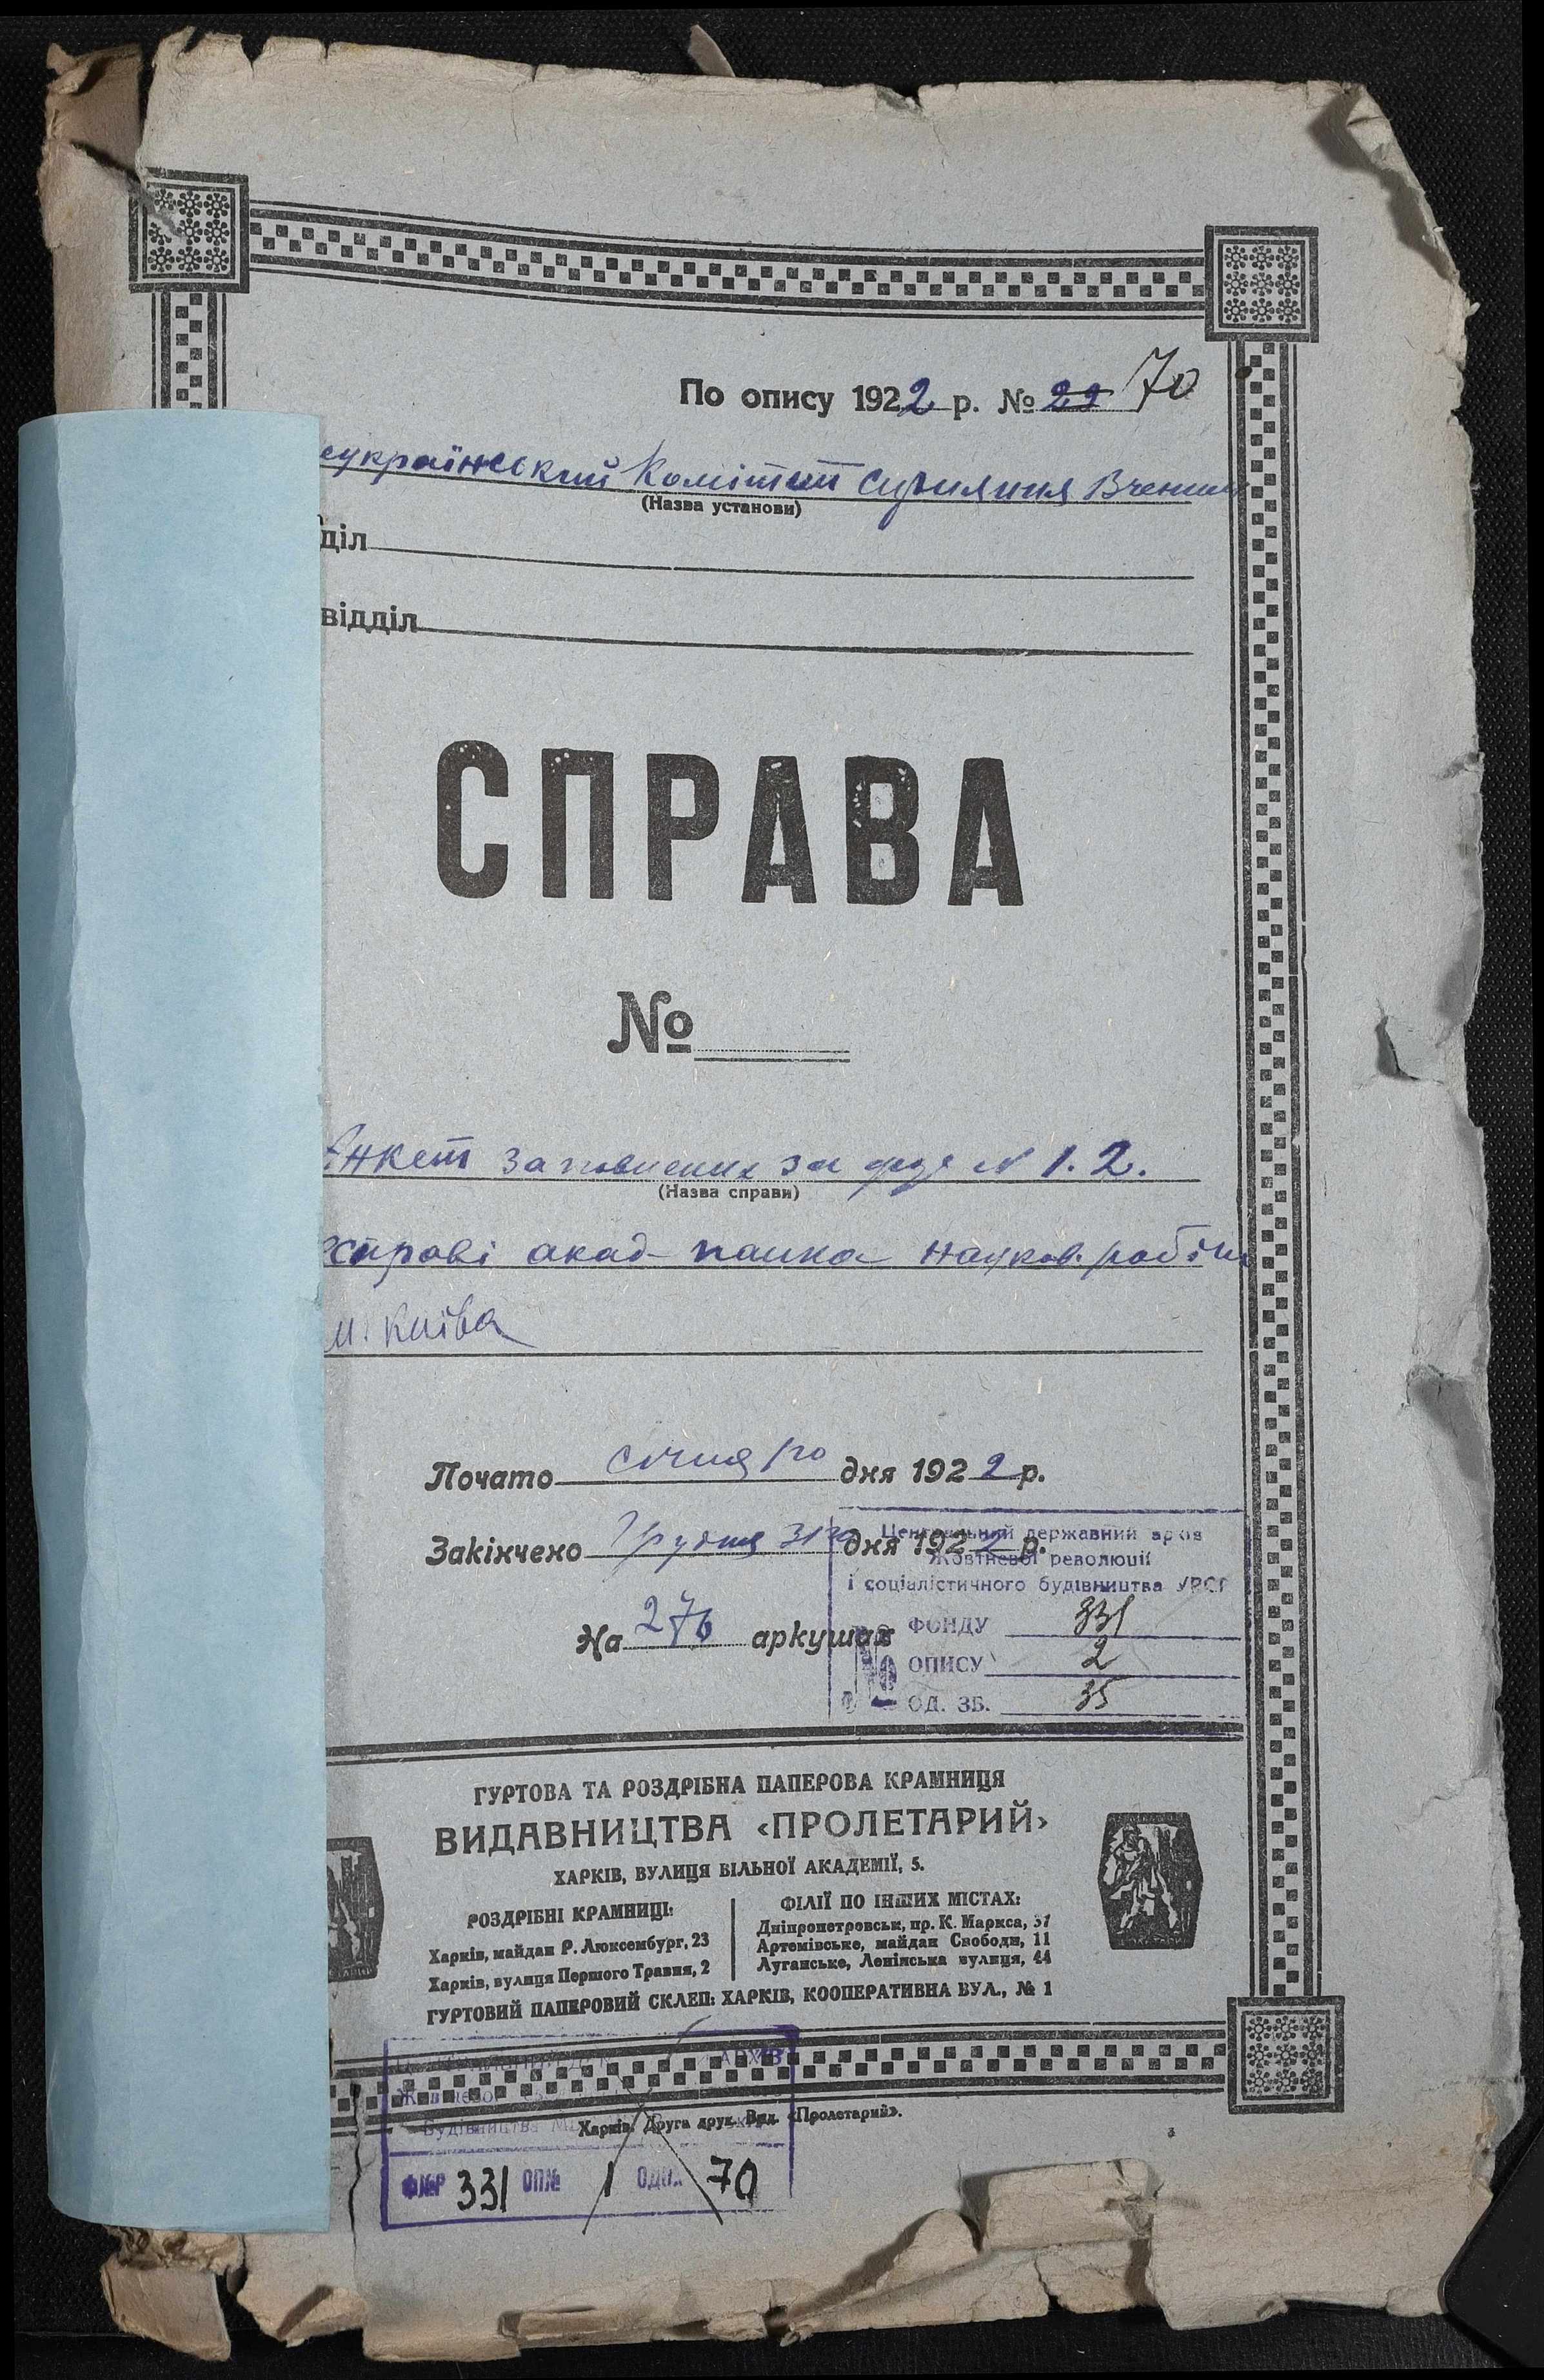 По опису 1922 р. № 29 70
еукраїнський Комітет Сприяння Вченим
(Назва установи)
діл
відділ
СПРАВА
№
Анкет заповнених за № 1. 2.
(Назва справи)
справі акад- пайка науков. робітн
м. Київа
Почато січня 1го дня 1922 р.
Закінчено Грудня 31го дня 1922 р.
На 276 аркушах
Центральний державний архів
Жовтневої революції
і соціалістичного будівництва УРСР
№ ФОНДУ 331
ОПИСУ 2
ОД. ЗБ. 35
ГУРТОВА ТА РОЗДРІБНА ПАПЕРОВА КРАМНИЦЯ
ВИДАВНИЦТВА «ПРОЛЕТАРИЙ»
ХАРКІВ, ВУЛИЦЯ ВІЛЬНОЇ АКАДЕМІЇ, 5.
РОЗДРІБНІ КРАМНИЦІ:
Харків, майдан Р. Люксембург, 23
Харків, вулиця Першого Травня, 2
ФІЛІЇ ПО ІНШИХ МІСТАХ:
Дніпропетровськ, пр. К. Маркса, 37
Артемівське, майдан Свободи, 11
Луганське, Ленінська вулиця, 44
ГУРТОВИЙ ПАПЕРОВИЙ СКЛЕП: ХАРКІВ, КООПЕРАТИВНА ВУЛ., № 1
АРХІВ
Будівництва
Харків. Друга друк. Вид. «Пролетарий».
Ф№Р 331 ОП№ 1 ОД№ 70